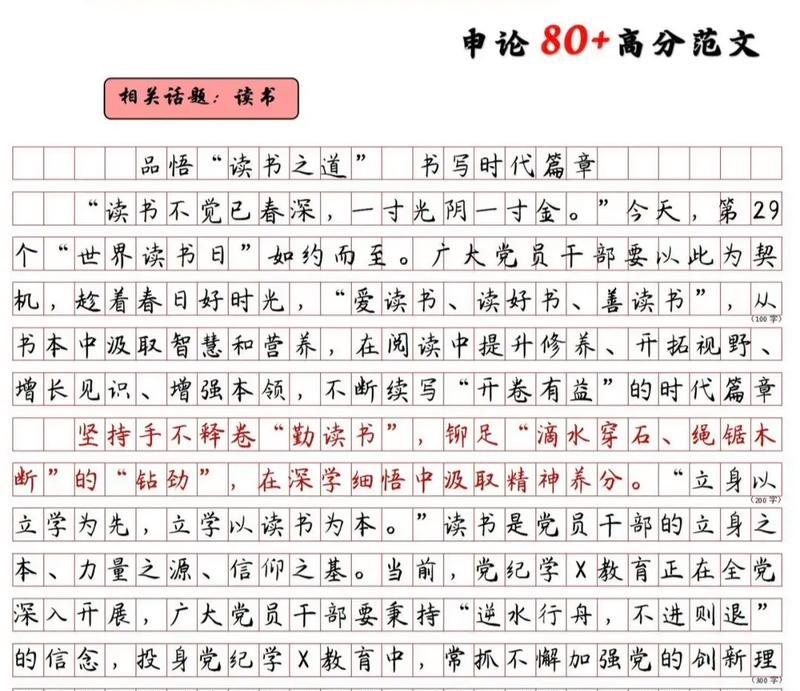 申论80+高分范文
相关话题：读书
品悟“读书之道” 书写时代篇章
“读书不觉已春深，一寸光阴一寸金。”今天，第29
个“世界读书日”如约而至。广大党员干部要以此为契
机，趁着春日好时光，“爱读书、读好书、善读书”，从
（100字）
书本中汲取智慧和营养，在阅读中提升修养、开拓视野、
增长见识、增强本领，不断续写“开卷有益”的时代篇章
坚持手不释卷“勤读书”，铆足“滴水穿石、绳锯木
断”的“钻劲”，在深学细悟中汲取精神养分。“立身以
（200字）
立学为先，立学以读书为本。”读书是党员干部的立身之
本、力量之源、信仰之基。当前，党纪学X教育正在全党
深入开展，广大党员干部要秉持“逆水行舟，不进则退”
的信念，投身党纪学X教育中，常抓不懈加强党的创新理
（300字）